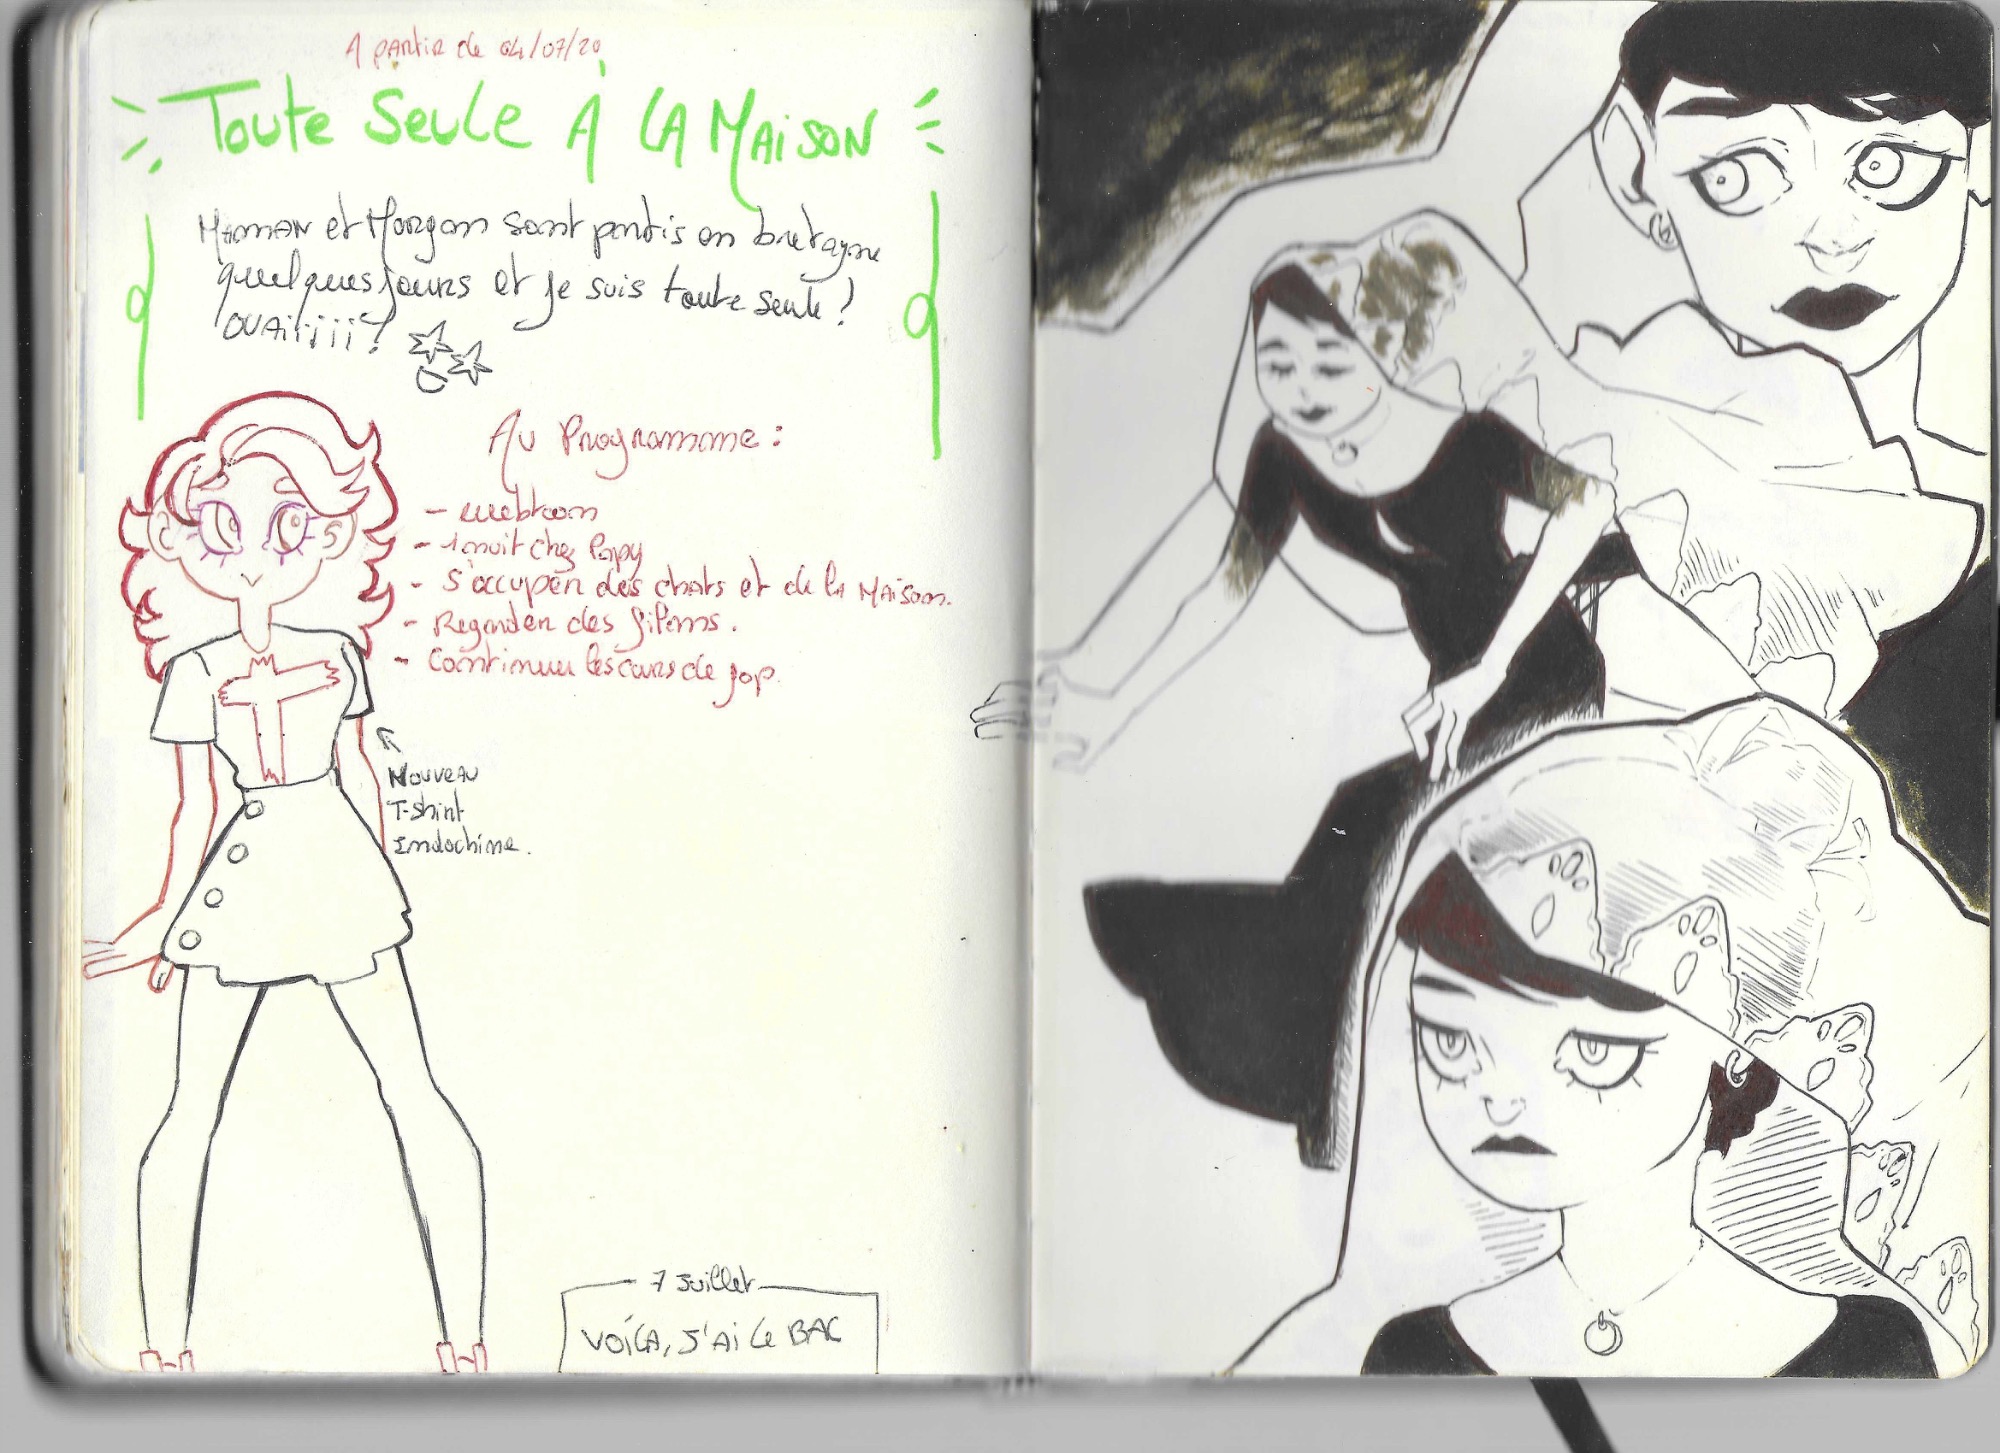 A partir de 04/07/20
Toute Seule À LA MAiSON
Maman et Morgan sont partis en bretagne
quelques jours et je suis toute seule !
OUAiiiii !
Au Programme :
- webtoon
- 1 nuit chez Papy
- S'occuper des chats et de la Maison.
- Regarder des films.
- Continuer les cours de jap.
Nouveau
T-shirt
Indochine.
7 Juillet
VOiLA, J'Ai Le BAC